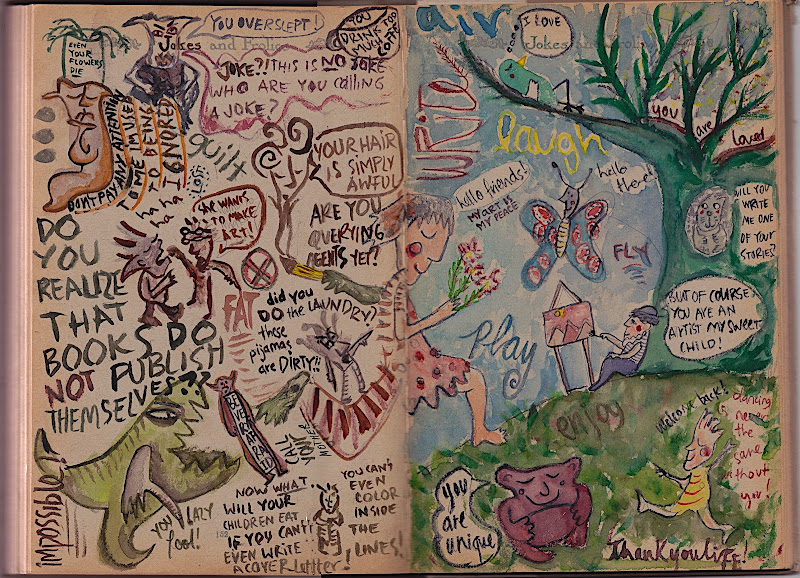 YOU OVERSLEPT!
YOU
DRINK TOO
MUCH
COFFEE
EVEN
YOUR
FLOWERS
DIE
Jokes and Frolics
JOKE?! THIS IS NO JOKE
WHO ARE YOU CALLING
A JOKE?
DON'T PAY ANY ATTENTION
TO ME I'M USED
TO BEING
IGNORED
guilt
LOST
YOUR HAIR
IS SIMPLY
AWFUL
ha ha
ha
SHE WANTS
US TO MAKE
ART!
ARE YOU
QUERYING
AGENTS YET?
DO
YOU
REALIZE
THAT
BOOKS DO
NOT PUBLISH
THEMSELVES??
FAT
did you
DO the LAUNDRY?
those
pijamas
are DIRTY!!
IMPOSSIBLE!
YOU LAZY
fool!
NOW WHAT
WILL YOUR
CHILDREN EAT
IF YOU CAN'T
EVEN WRITE
A COVER Letter!
YOU CAN'T
EVEN
COLOR
INSIDE
THE
LINES!
air
I LOVE
Jokes and Frolics
WRITE
laugh
you
are
loved
hello friends!
MY ART IS
MY PEACE
hello
there!
WILL YOU
WRITE
ME ONE
OF YOUR
STORIES?
FLY
BUT OF COURSE!
YOU ARE AN
ARTIST MY SWEET
CHILD!
play
enjoy
Welcome back!
dancing
is never
the
same
without
you!
you
are
unique
Thank you LIFE!